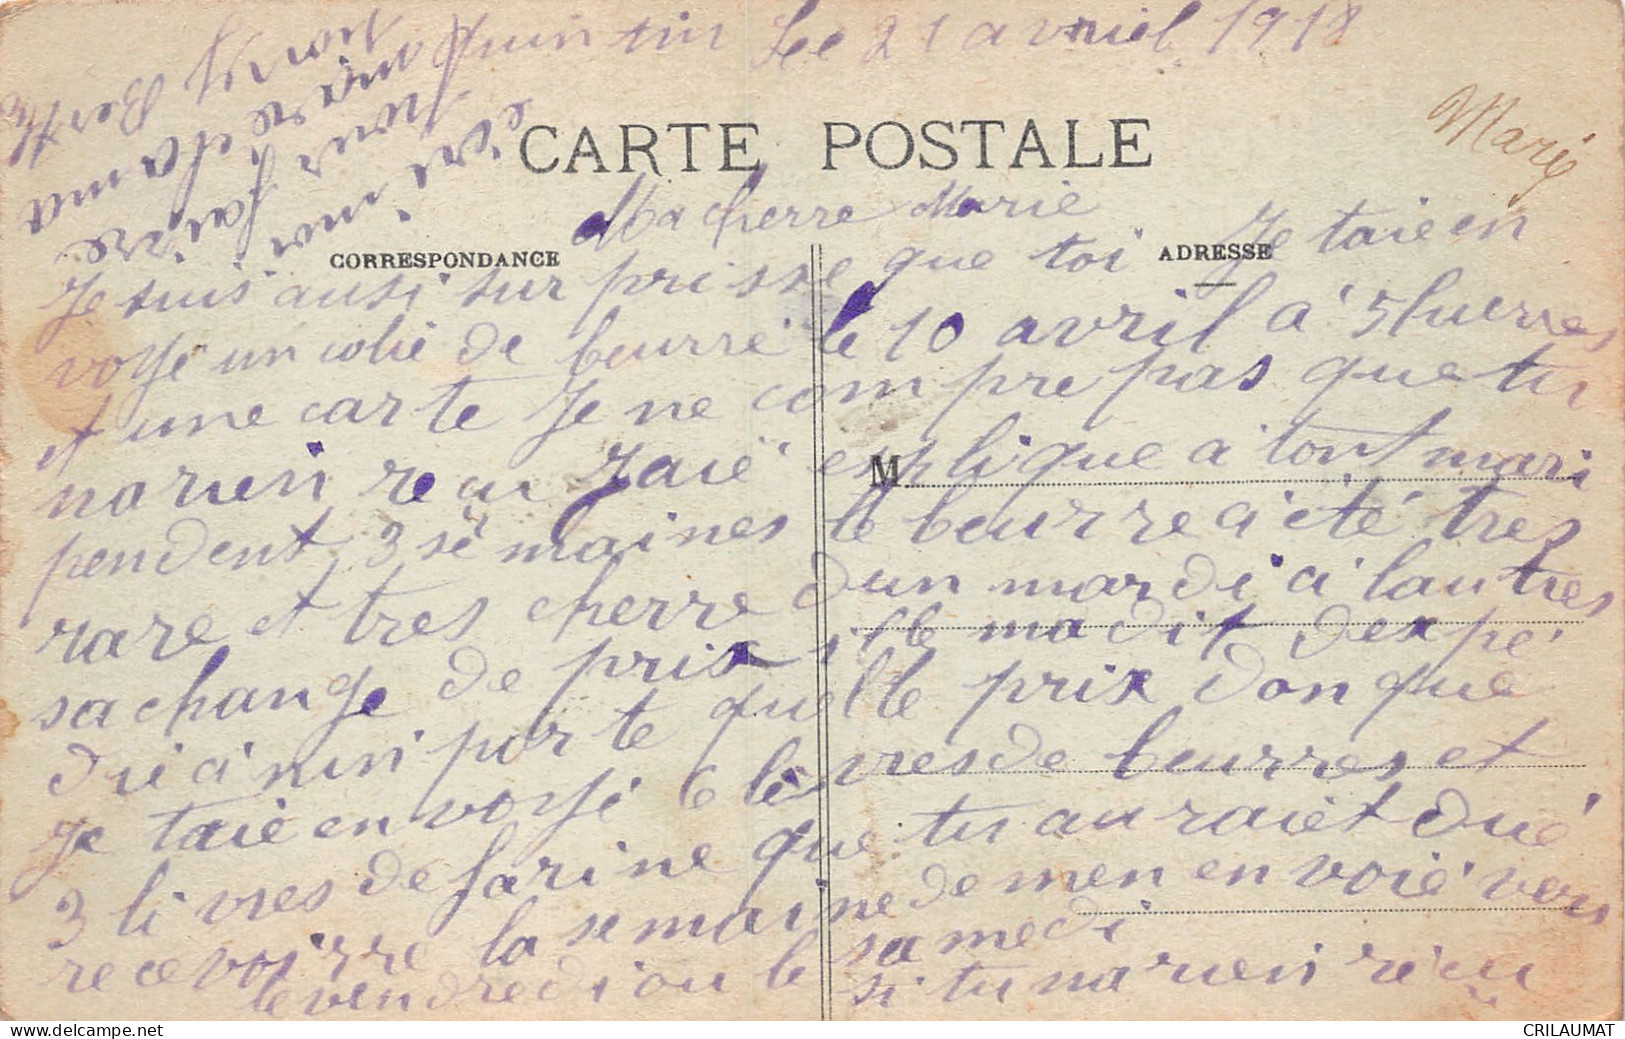 Quintin Le 21 avriel 1918
Marie
CARTE POSTALE
Ma cherre Marie
CORRESPONDANCE
ADRESSE
Je suis ausi sur prisse que toi Je taie en
voyé un colié de beurré le 10 avril a 5 huerres
et une carte Je ne com pre pas que tu
na rien re çu Jaië expliqué a tont mari
M
pendent 3 semaines le beurre a été tres
rare et tres cherre dun mardi a lautres
sa change de prix ille ma dit dexpé
dié a nin porte quelle prix don que
Je taie en voyé 6 livres de beurres et
3 livres de farine que tu auraiet dué
recevoirre la semaine de men en voié ver
le vendredi ou le samedi
si tu na rien reçu
écri moi
pour faire
ma re cla ma
tion
Berthe
CRILAUMAT